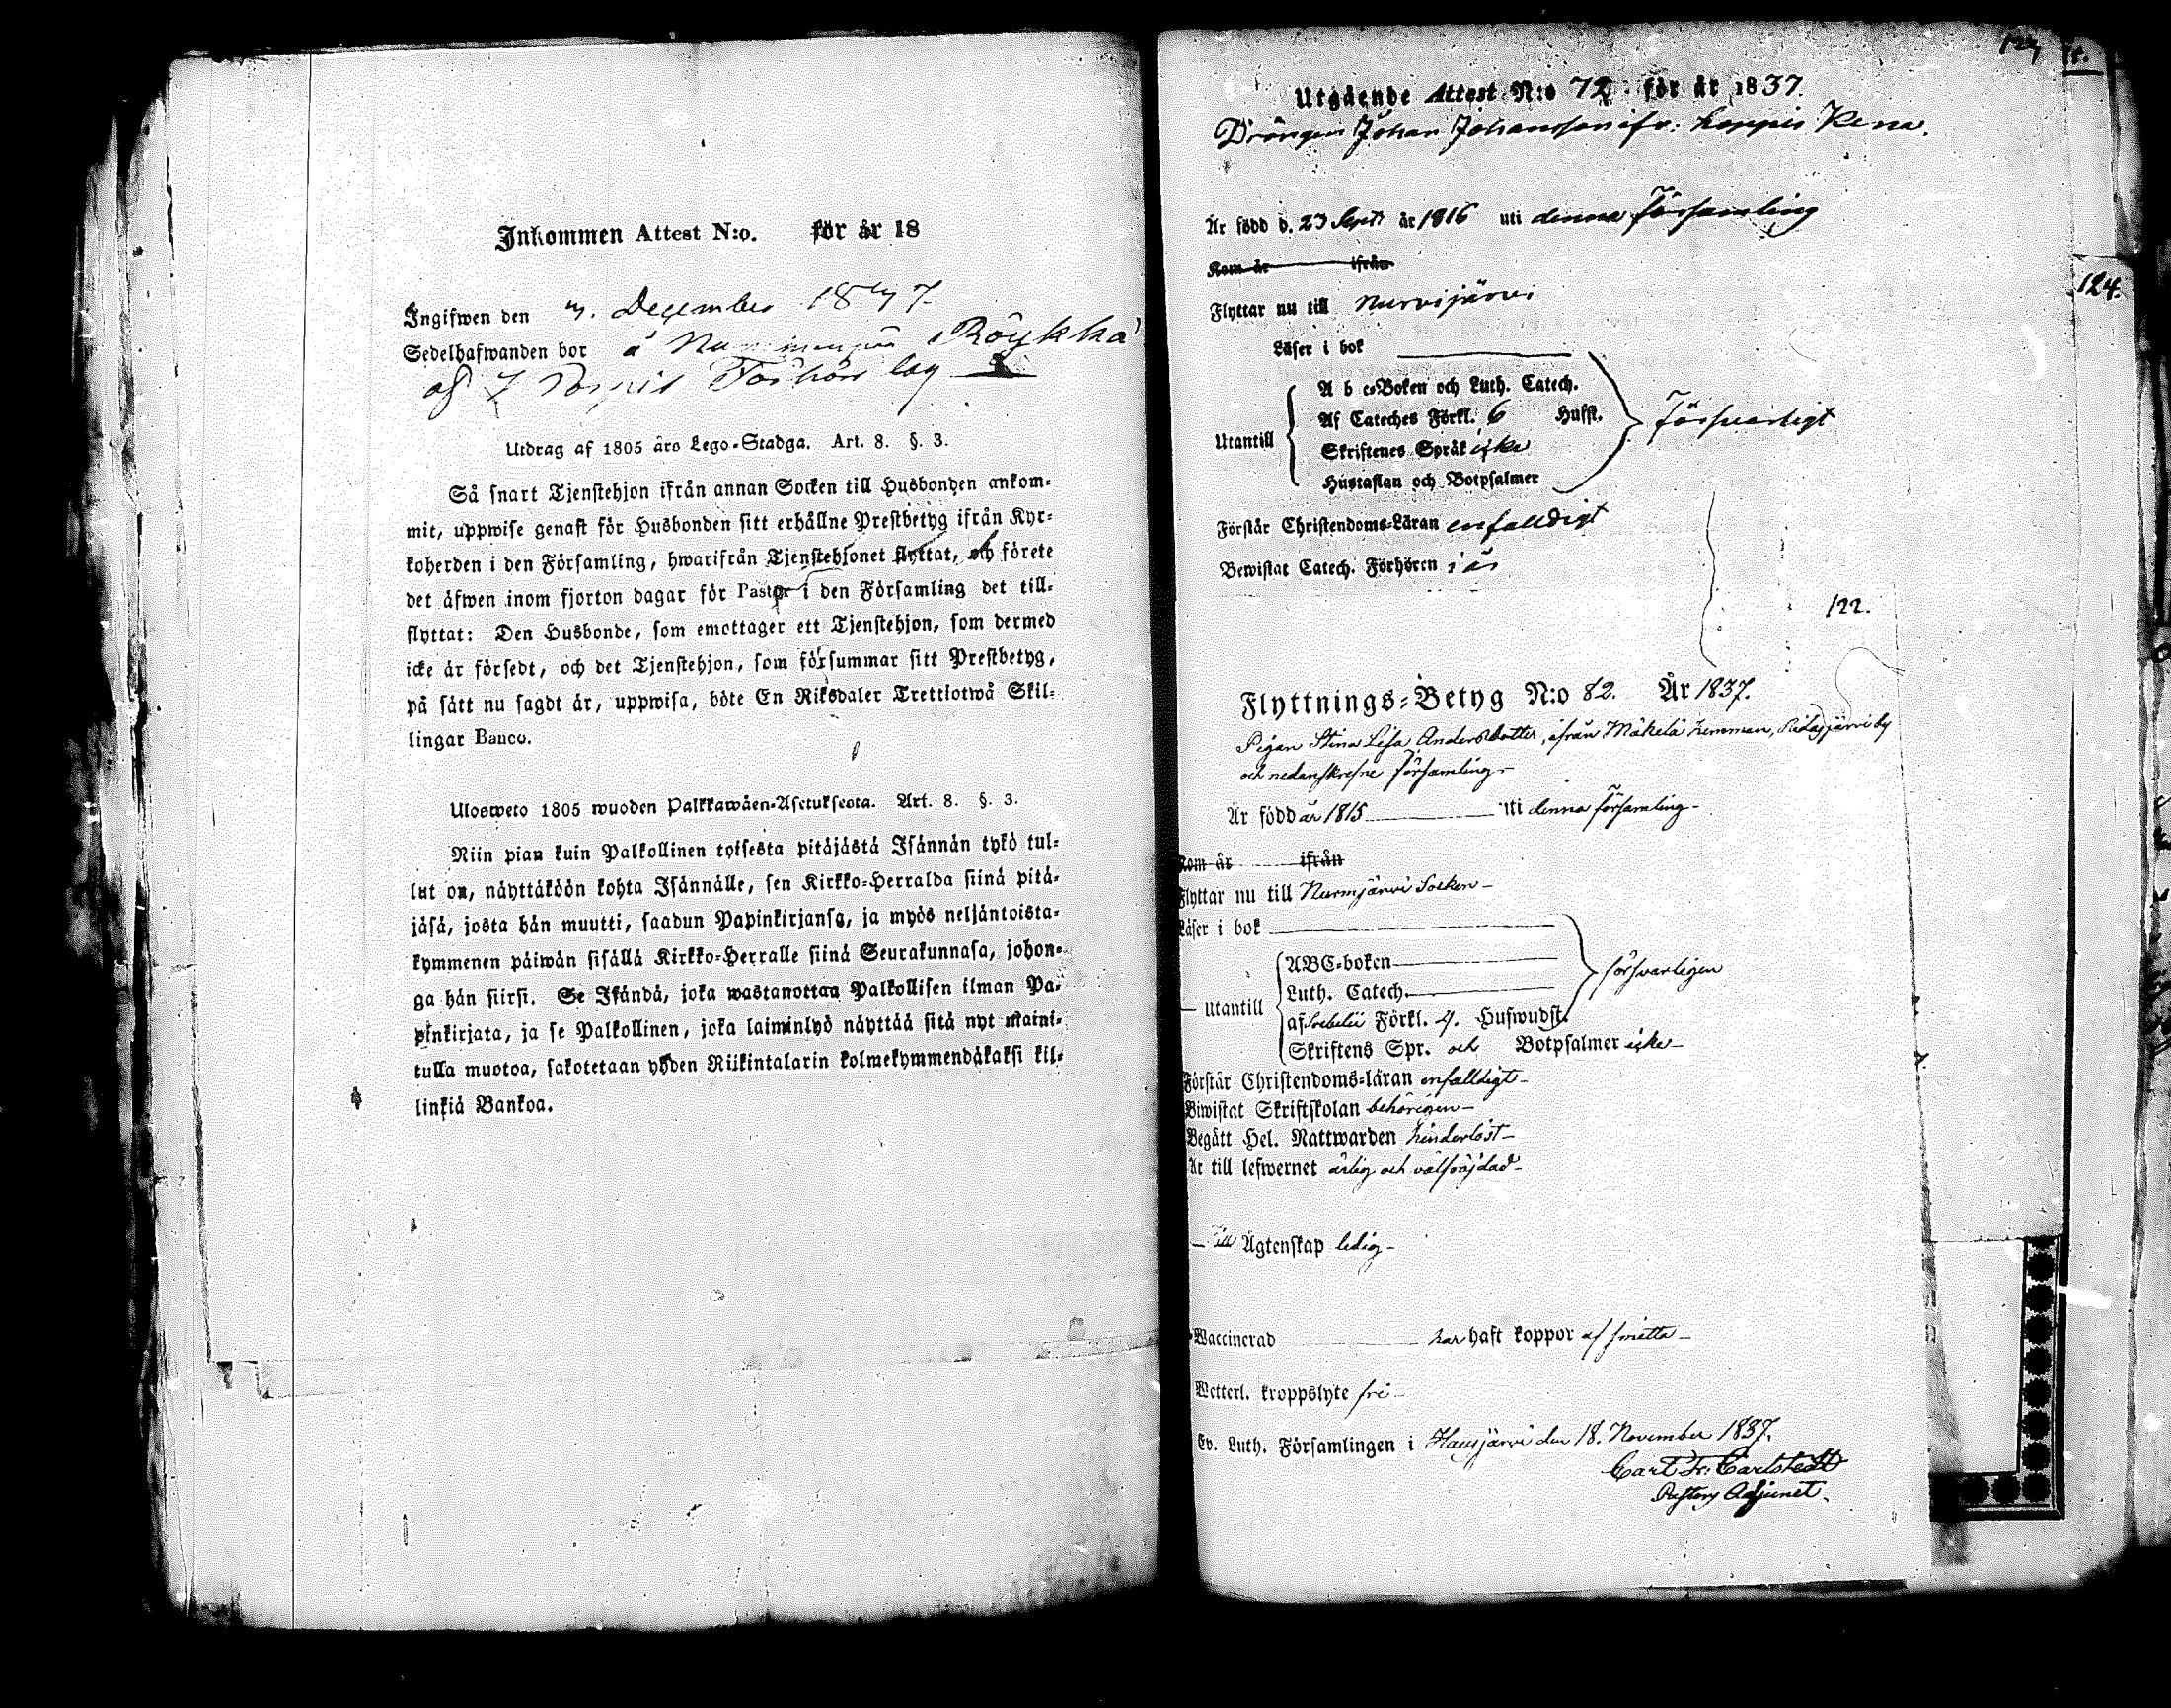 Inkommen Attest N:o. för år 18
Ingifwen den December
Sedelhafwanden bor å Röykkä
af
Utdrag af 1805 års Lego-Stadga. Art. 8. §. 3.
Så snart Tjenstehjon ifrån annan Socken till Husbonden ankom-
mit, uppwise genast för Husbonden sitt erhållne Prestbetyg ifrån Kyr-
koherden i den Församling, hwarifrån Tjenstehjonet flyttat, och förete
det äfwen inom fjorton dagar för Pastor i den Församling det till-
flyttat: Den Husbonde, som emottager ett Tjenstehjon, som dermed
icke är försedt, och det Tjenstehjon, som försummar sitt Prestbetyg,
på sätt nu sagdt är, uppwisa, böte En Riksdaler Trettiotwå Skil-
lingar Banco.
Ulosweto 1805 wuoden Palkkawäen-Asetuksesta. Art. 8. §. 3.
Niin pian kuin Palkollinen toisesta pitäjästä Isännän tykö tul-
lut on, näyttäköön kohta Isännälle, sen Kirkko-Herralda siinä pitä-
jäsä, josta hän muutti, saadun Papinkirjansa, ja myös neljäntoista-
kymmenen päiwän sisällä Kirkko-Herralle siinä Seurakunnasa, johon-
ga hän siirsi. Se Isändä, joka wastanottaa Palkollisen ilman Pa-
pinkirjata, ja se Palkollinen, joka laiminlyö näyttää sitä nyt maini-
tulla muotoa, sakotetaan yhden Riikintalarin kolmekymmendäkaksi kil-
linkiä Bankoa.
Utgående Attest N:o 72 för år 1837.
Drängen Johan Johansson ifr:
Är född d. 23 Sept år 1816 uti denna Församling
Kom år ifrån
Flyttar nu till Nurmijärvi
Läser i bok
Utantill
A b c-Boken och Luth. Catech.
Af Cateches Förkl. 6 Husst.
Skriftenes Språk icke
Hustaflan och Botpsalmer
försvarligt
Förstår Christendoms-Läran enfalldigt
Bewistat Catech. Förhören
122.
124.
Flyttnings-Betyg N:o 82. År 1837.
Pigan Stina Lisa Andersdotter, ifrån Mäkelä hemman, Ridasjärvi by
och nedanskrefne församling-
Är född år 1815 uti denna församling-
Kom år ifrån
Flyttar nu till Nurmjärvi Socken-
Läser i bok
Utantill
ABC-boken
Luth. Catech.
af Svebelii Förkl. 4. Hufwudst.
Skriftens Spr. och Botpsalmer icke-
försvarligen
Förstår Christendoms-läran enfalldigt-
Biwistat Skriftskolan behörigen-
Begått Hel. Nattwarden hinderlöst-
Är till lefwernet ärlig och välfräjdad-
Till Ägtenskap ledig-
Waccinerad har haft koppor
Wetterl. kroppslyte fri-
Ev. Luth. Församlingen i Hausjärvi den 18. November 1837.
Carl Fr: Carlstedt
Adjunct.